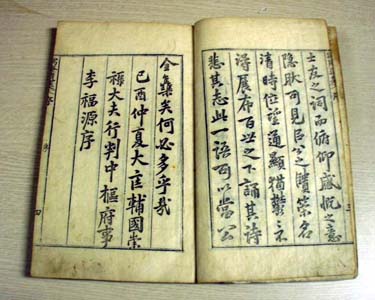 士友之詞而俯仰感慨之意
可見公之賢策名
淸時位望通顯猶鬱鬱不
得展布百世之下誦其詩
悲其志此一語可以當公
金矣何必多乎哉
己酉仲夏大匡輔國崇
祿大夫行判中樞府事
李福源序
序
四